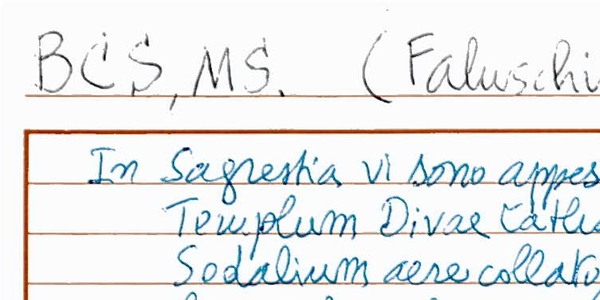 BCS, MS. (Faluschi
In Sagrestia vi sono appes
Templum Divae Cathe
Sodalium aere collato